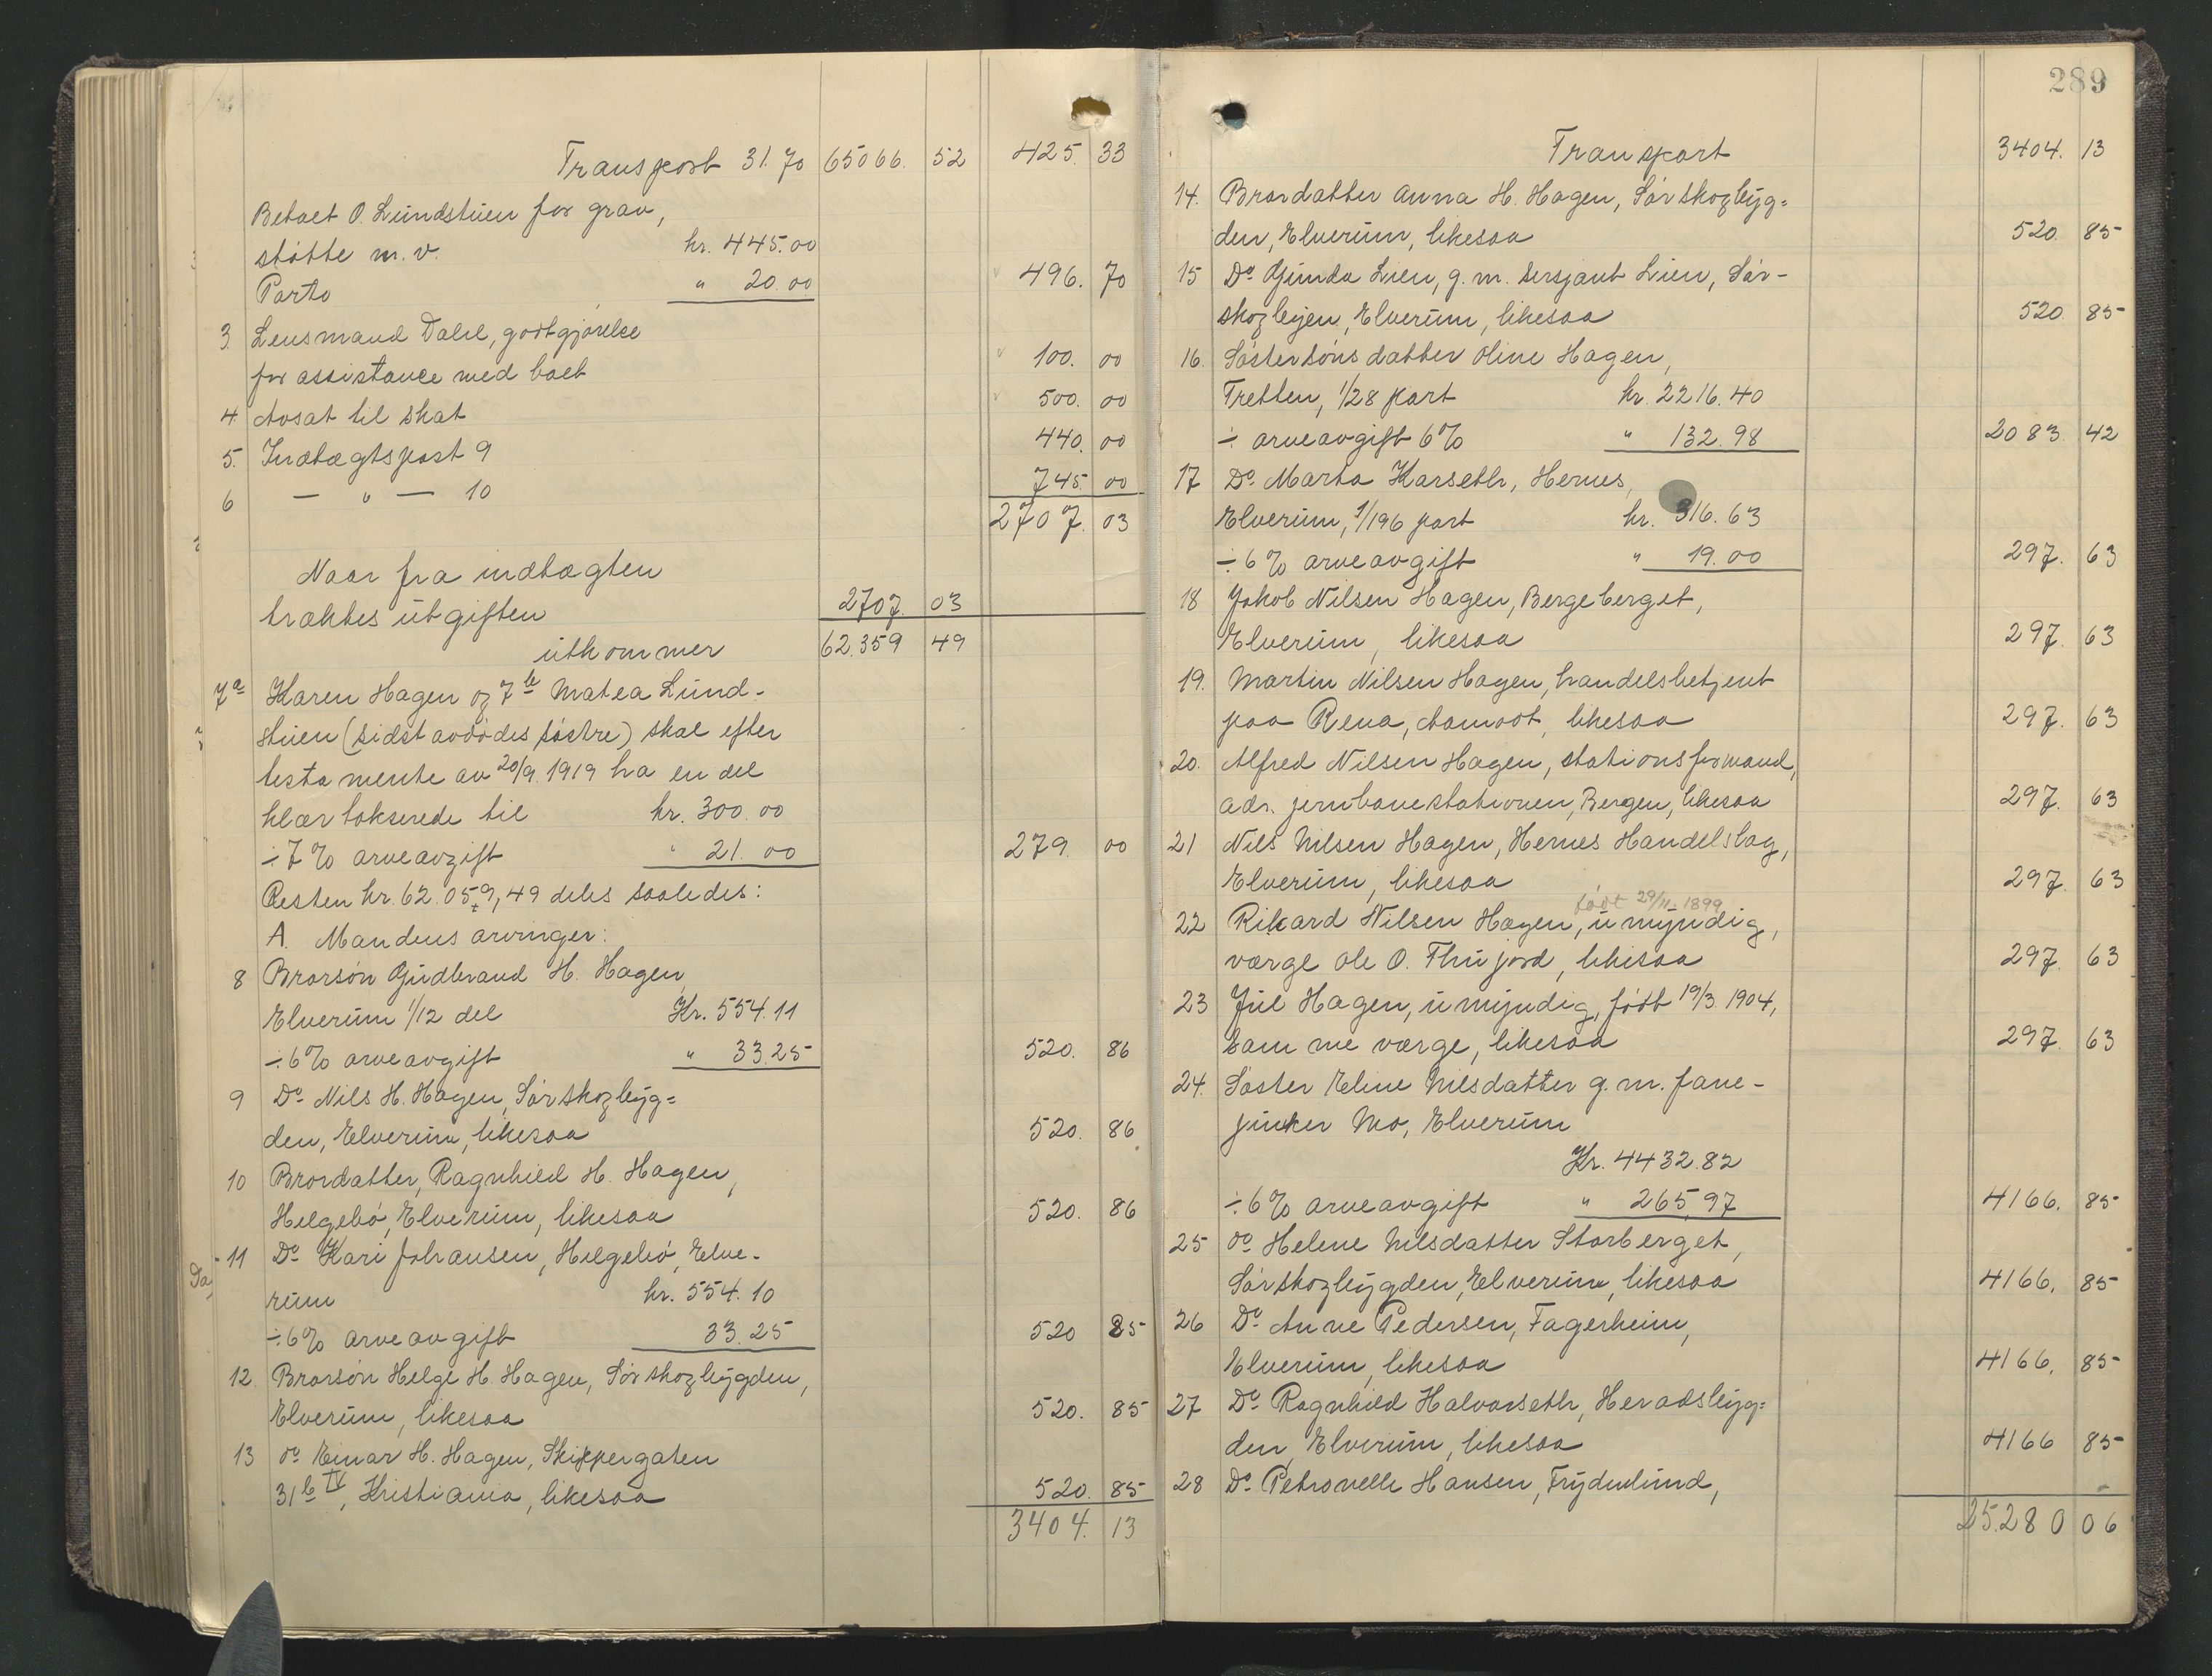 Transport 31.70 65066. 52 425. 33
Betalt O. Lundstuen for grav,
støtte m. v. kr. 445.00
Porto " 20.00 496. 70
3 Lensmand Dahl, godtgjørelse
for assistance med boet 100. 00
4 Avsat til skat 500. 00
5. Indtægtspost 9 440. 00
6 — " — 10 745. 00
2707. 03
Naar fra indtægten
trækkes utgiften 2707. 03
utkommer 62.359 49
7a Karen Hagen og 7b Matea Lund-
stuen (sidst avdødes søstre) skal efter
testamente av 20/9 1919 ha en del
klær takserede til kr. 300.00
÷ 7% arveavgift " 21.00 279. 00
Resten kr. 62.059,49 deles saaledes:
A. Mandens arvinger:
8 Brorsøn Gudbrand H. Hagen,
Elverum 1/12 del Kr. 554.11
÷ 6% arveavgift " 33.25 520. 86
9 Do Nils H. Hagen, Sørskogbyg=
den, Elverum, likesaa 520. 86
10 Brordatter, Ragnhild H. Hagen,
Helgebø, Elverum, likesaa 520. 86
11 Do Kari Johansen, Helgebø, Elve-
rum kr. 554.10
÷ 6% arveavgift 33.25 520 85
12. Brorsøn Helge H. Hagen, Sørskogbygden,
Elverum, likesaa 520. 85
13 do Einar H. Hagen, Skippergaten
31 b IV, Kristiania, likesaa 520. 85
3404. 13
289
Transport 3404. 13
14. Brordatter Anna H. Hagen, Sørskogbyg=
den, Elverum, likesaa 520. 85
15 Do Gunda Lien, g. m. sersjant Lien, Sør-
skogbyen, Elverum, likesaa 520. 85
16. Søstersøns datter Oline Hagen,
Tretten, 1/28 part kr. 2216.40
÷ arveavgift 6% " 132.98 2083. 42
17 Do Marta Karseth, Hernes,
Elverum, 1/196 part kr. 316.63
÷ 6% arveavgift " 19.00 297. 63
18 Jakob Nilsen Hagen, Bergeberget,
Elverum, likesaa 297. 63
19. Martin Nilsen Hagen, handelsbetjent
paa Rena, Aamodt, likesaa 297. 63
20. Alfred Nilsen Hagen, stationsformand,
adr. jernbanestationen, Bergen, likesaa 297. 63
21 Nils Nilsen Hagen, Hernes Handelslag,
Elverum, likesaa 297. 63
født 29/11. 1899
22 Rikard Nilsen Hagen, umyndig,
værge Ole O. Thujord, likesaa 297. 63
23 Juel Hagen, umyndig, født 19/3 1904,
samme værge, likesaa 297. 63
24. Søster Eline Nilsdatter g. m. fane-
junker Mo, Elverum
Kr. 4432.82
÷ 6% arveavgift " 265,97 4166. 85
25 do Helene Nilsdatter Storberget,
Sørskogbygden, Elverum, likesaa 4166. 85
26 Do Anne Pedersen, Fagerheim,
Elverum, likesaa 4166. 85
27 Do Ragnhild Halvorseth, Heradsbyg=
den, Elverum, likesaa 4166 85
28 Do Petronelle Hansen, Frydenlund,
25.280 06